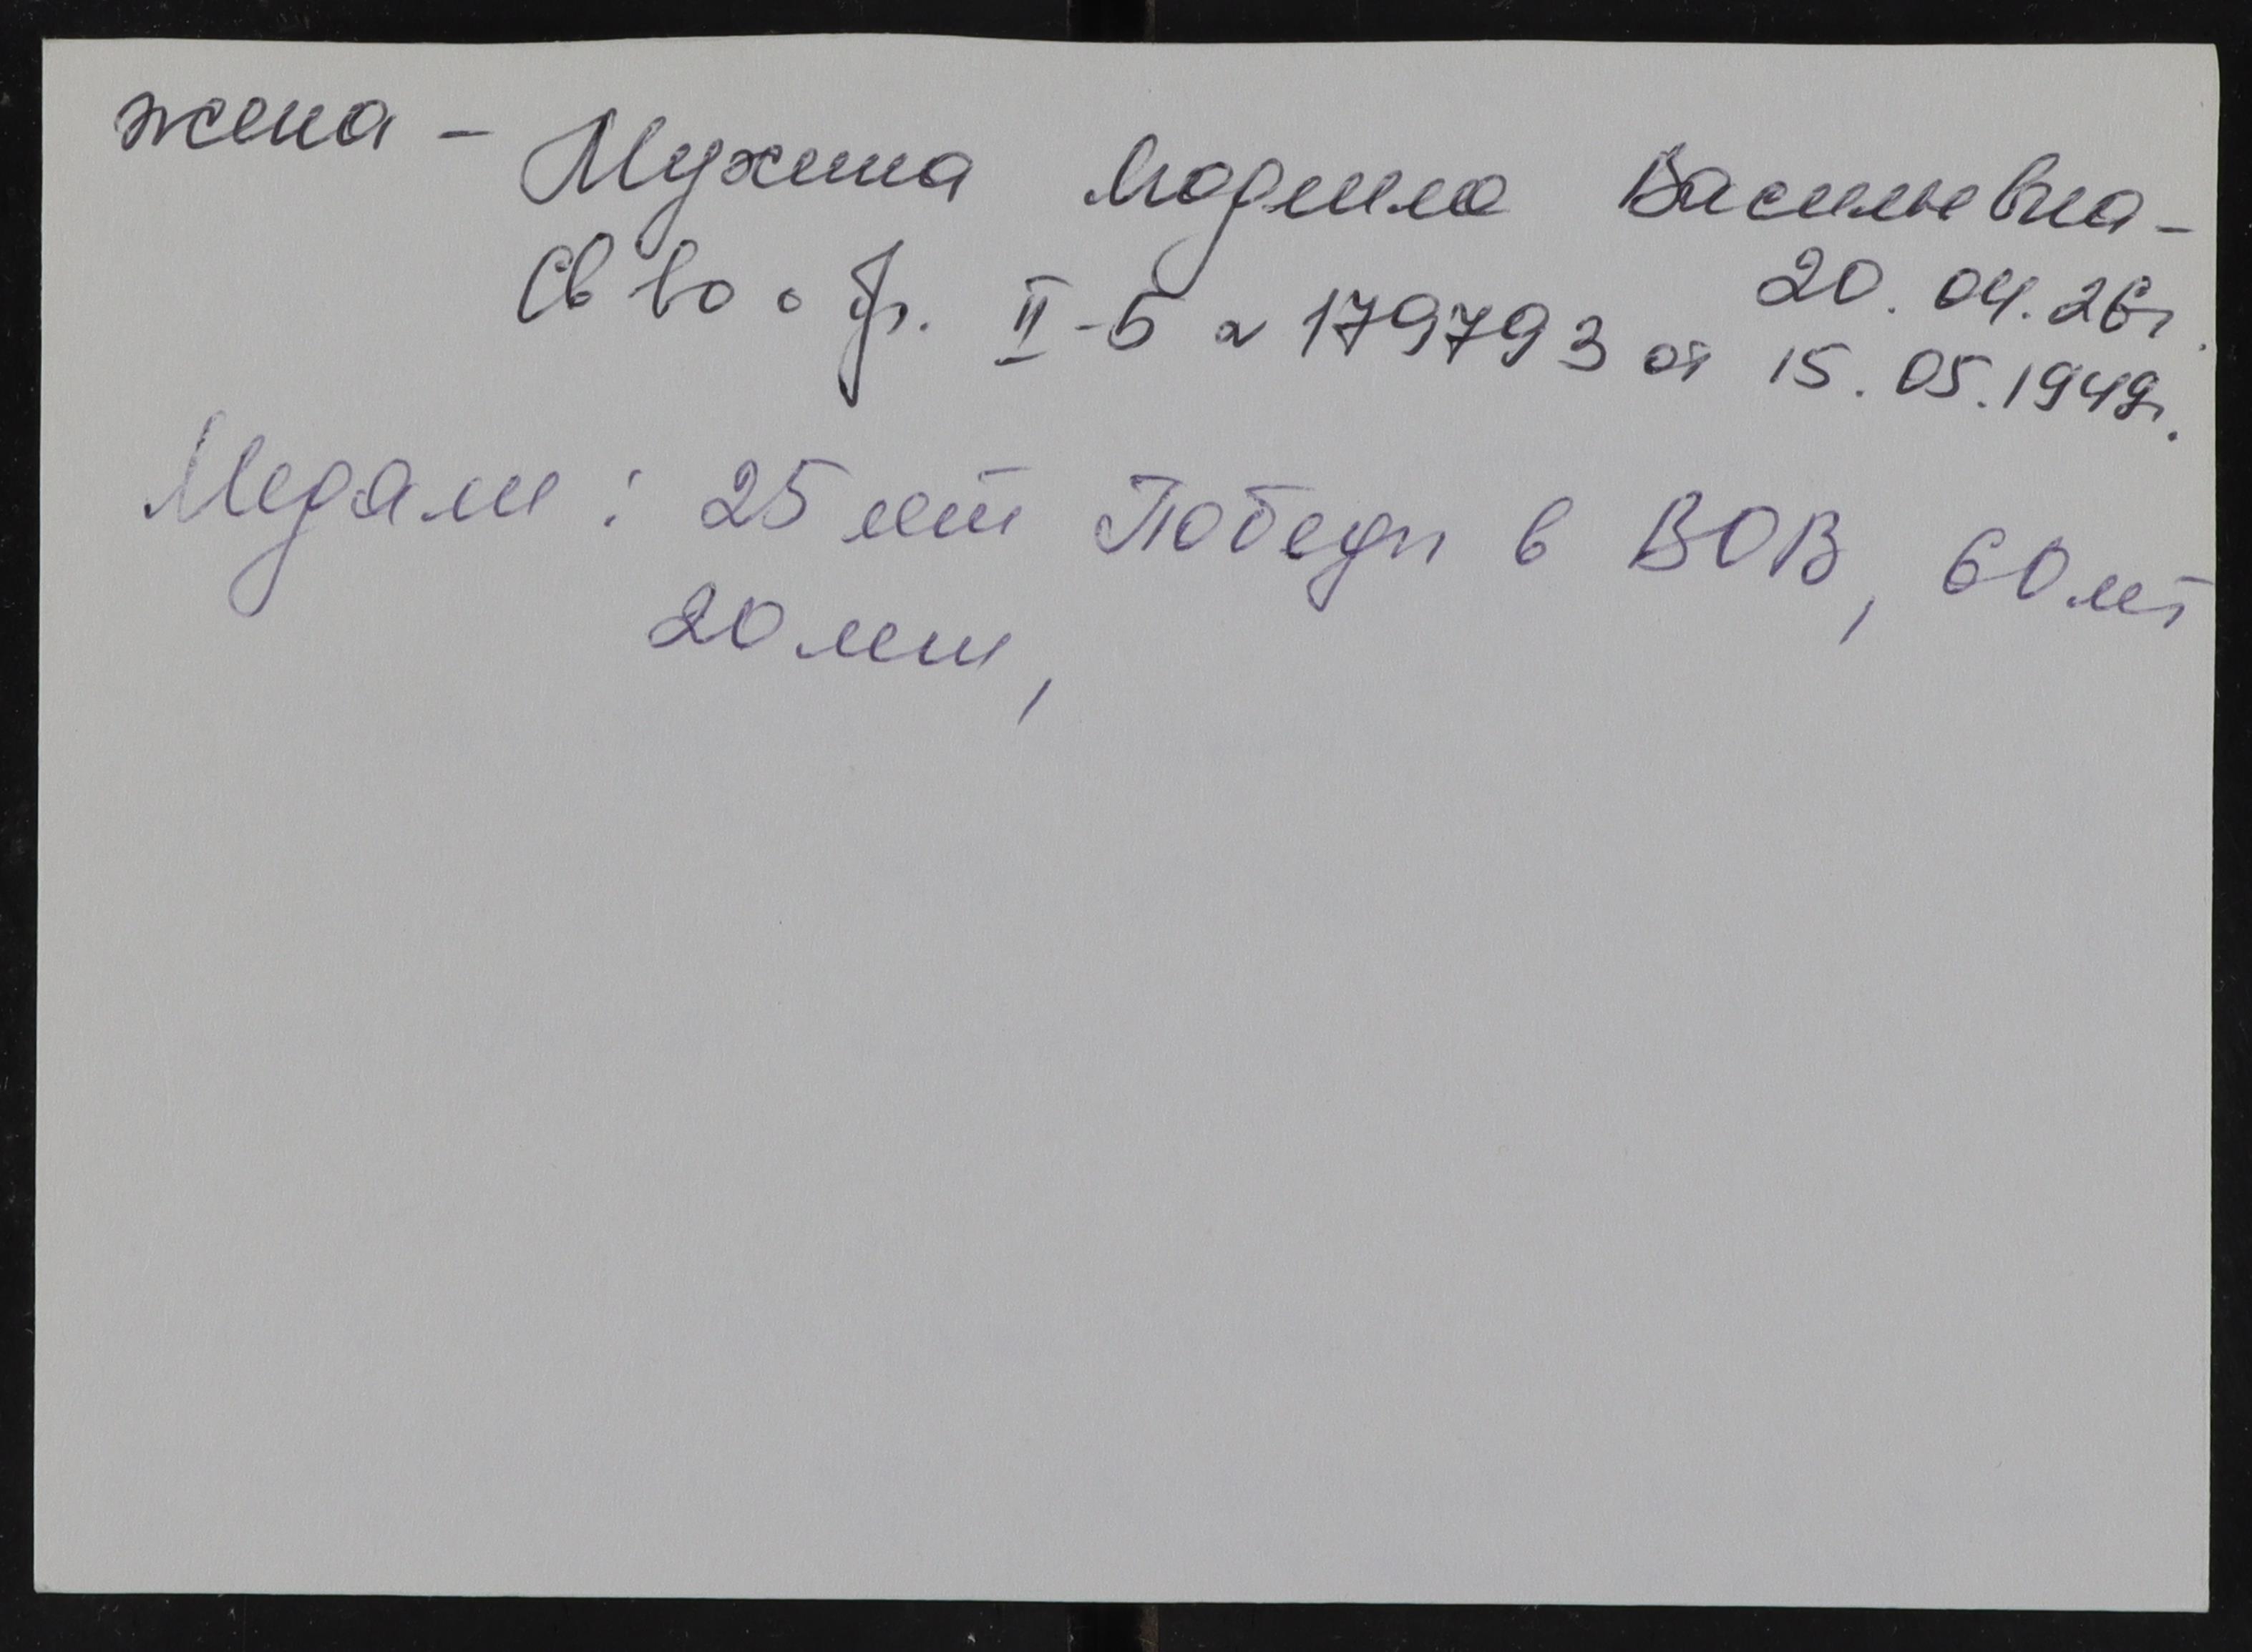 жена - Мухина Людмила Васильевна -
20.04.26г.
Св во о бр. II-Б № 179793 от 15.05.1949г.
Медали: 25 лет Победы в ВОВ, 60 лет
20 лет,